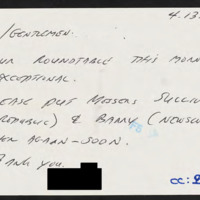 4.13.
/GENTLEMEN.
ROUNDTABLE THIS MORN
EXCEPTIONAL.
EASE PUT MESSRS SULLIV
REPUBLIC) & BARRY (NEWSW
AGAIN - SOON.
HANK YOU.
CC: